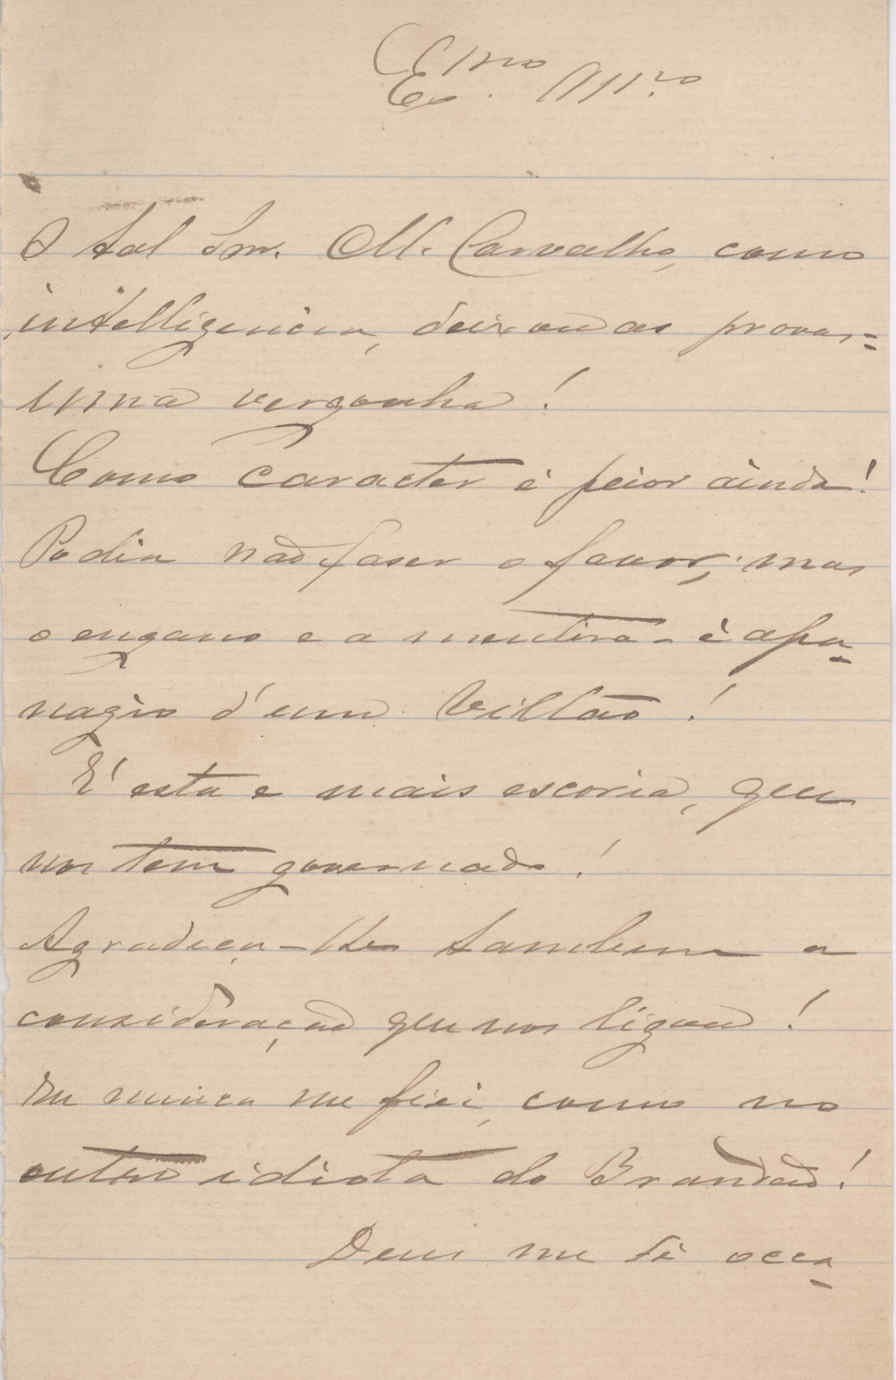 Ex.mo Am.o
O tal Snr. M. Carvalho, como
intelligencia, deixou as provas=
uma vergonha!
Como Caracter é peior ainda!
Podia não faser o favor; mas
o engano e a mentira - é apa-
nagio d'um Villão!
É esta e mais escoria, que
nos tem governado!
Agradeça-lhe tambem a
consideração que nos ligou!
Eu nunca me fiei, como no
outro idiota do Brandão!
Deus me dê occa-